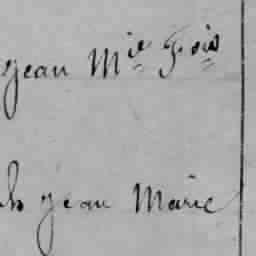 Jean Mie Fois
Jean Marie